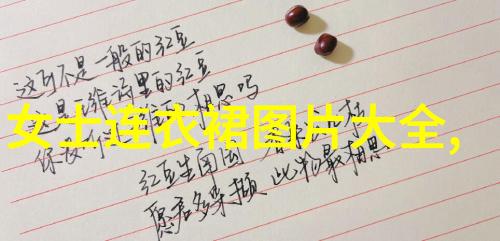 这可不是一般的红豆
这是海里的红豆
你没相思吗
女士连衣裙图片大全,
红豆生南国 春来枝
愿君多采撷 此物最相思